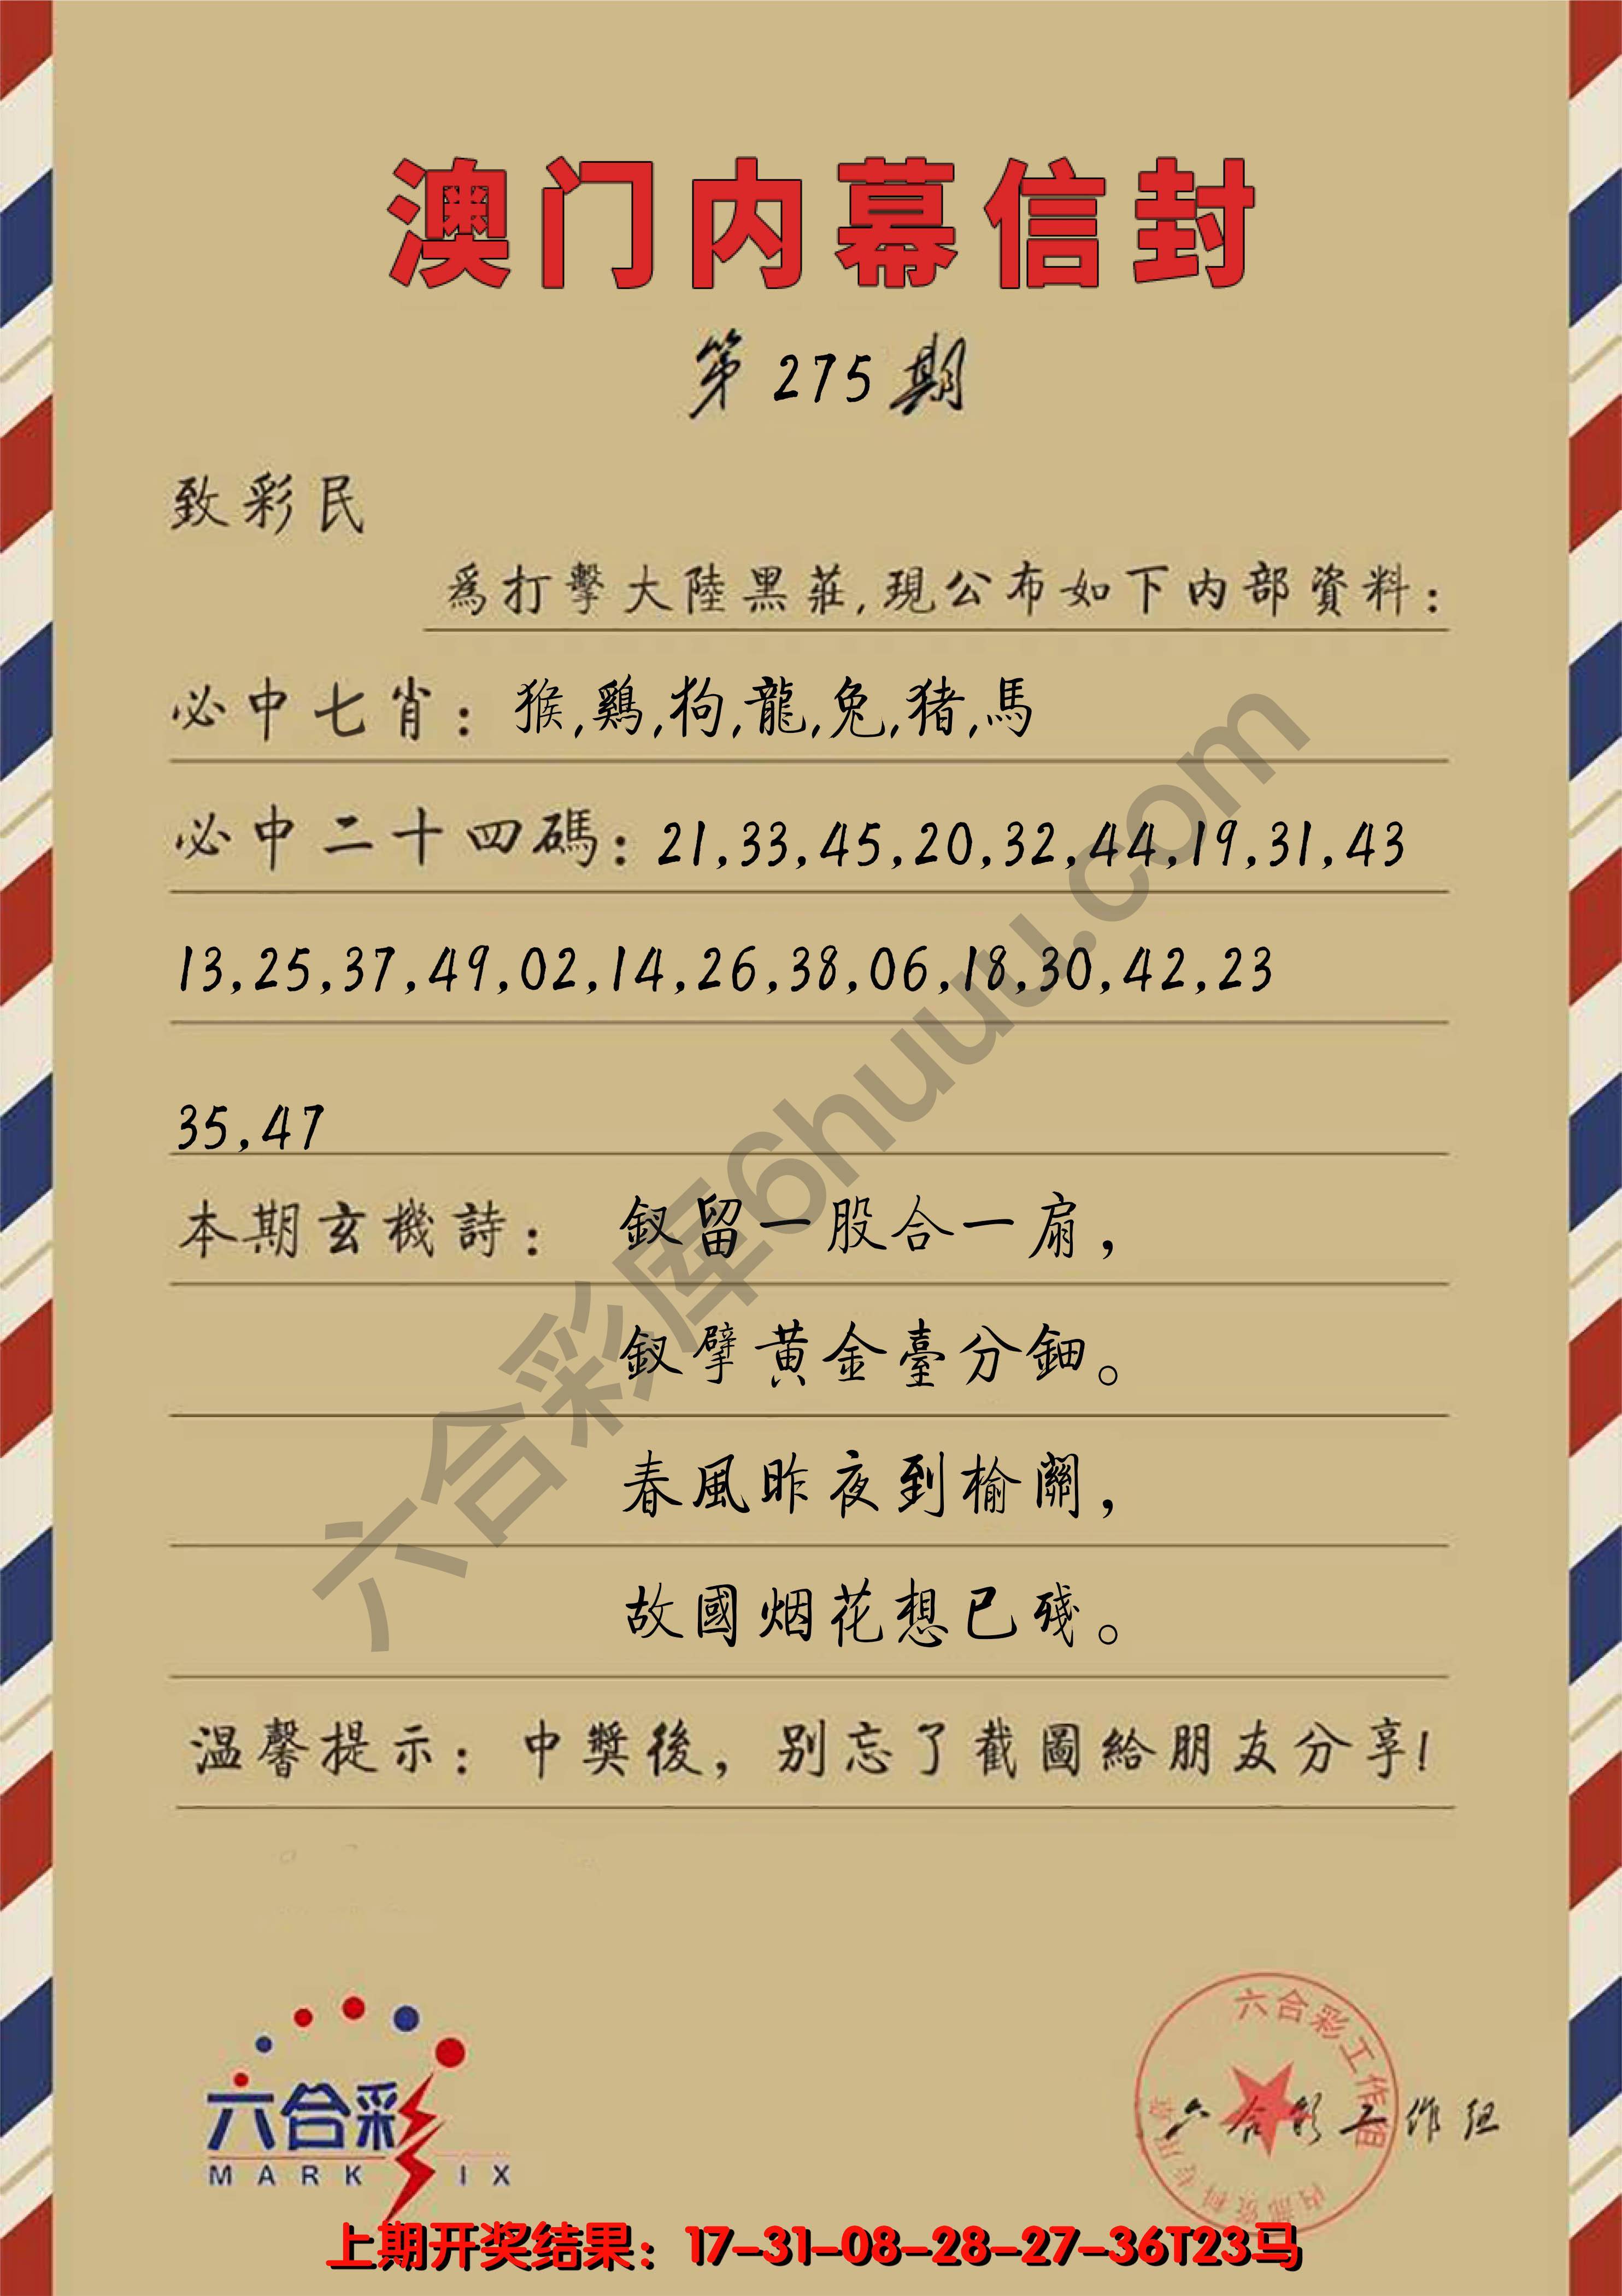 澳门内幕信封
第275期
致彩民
爲打擊大陸黑莊,現公布如下内部資料:
必中七肖: 猴,鷄,狗,龍,兔,猪,馬
必中二十四碼: 21,33,45,20,32,44,19,31,43
13,25,37,49,02,14,26,38,06,18,30,42,23
35,47
本期玄機詩: 釵留一股合一扇,
釵擘黄金臺分鈿。
春風昨夜到榆關,
故國烟花想已殘。
温馨提示: 中獎後, 别忘了截圖給朋友分享!
六合彩库6huuu.com
六合彩
MARK IX
六合彩工作组
内部资料专用章
六合彩工作组
上期开奖结果: 17-31-08-28-27-36T23马